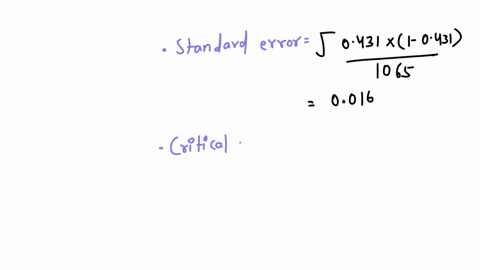 • Standard error = √ 0.431 × (1 - 0.431)
1065
= 0.016
• Critical